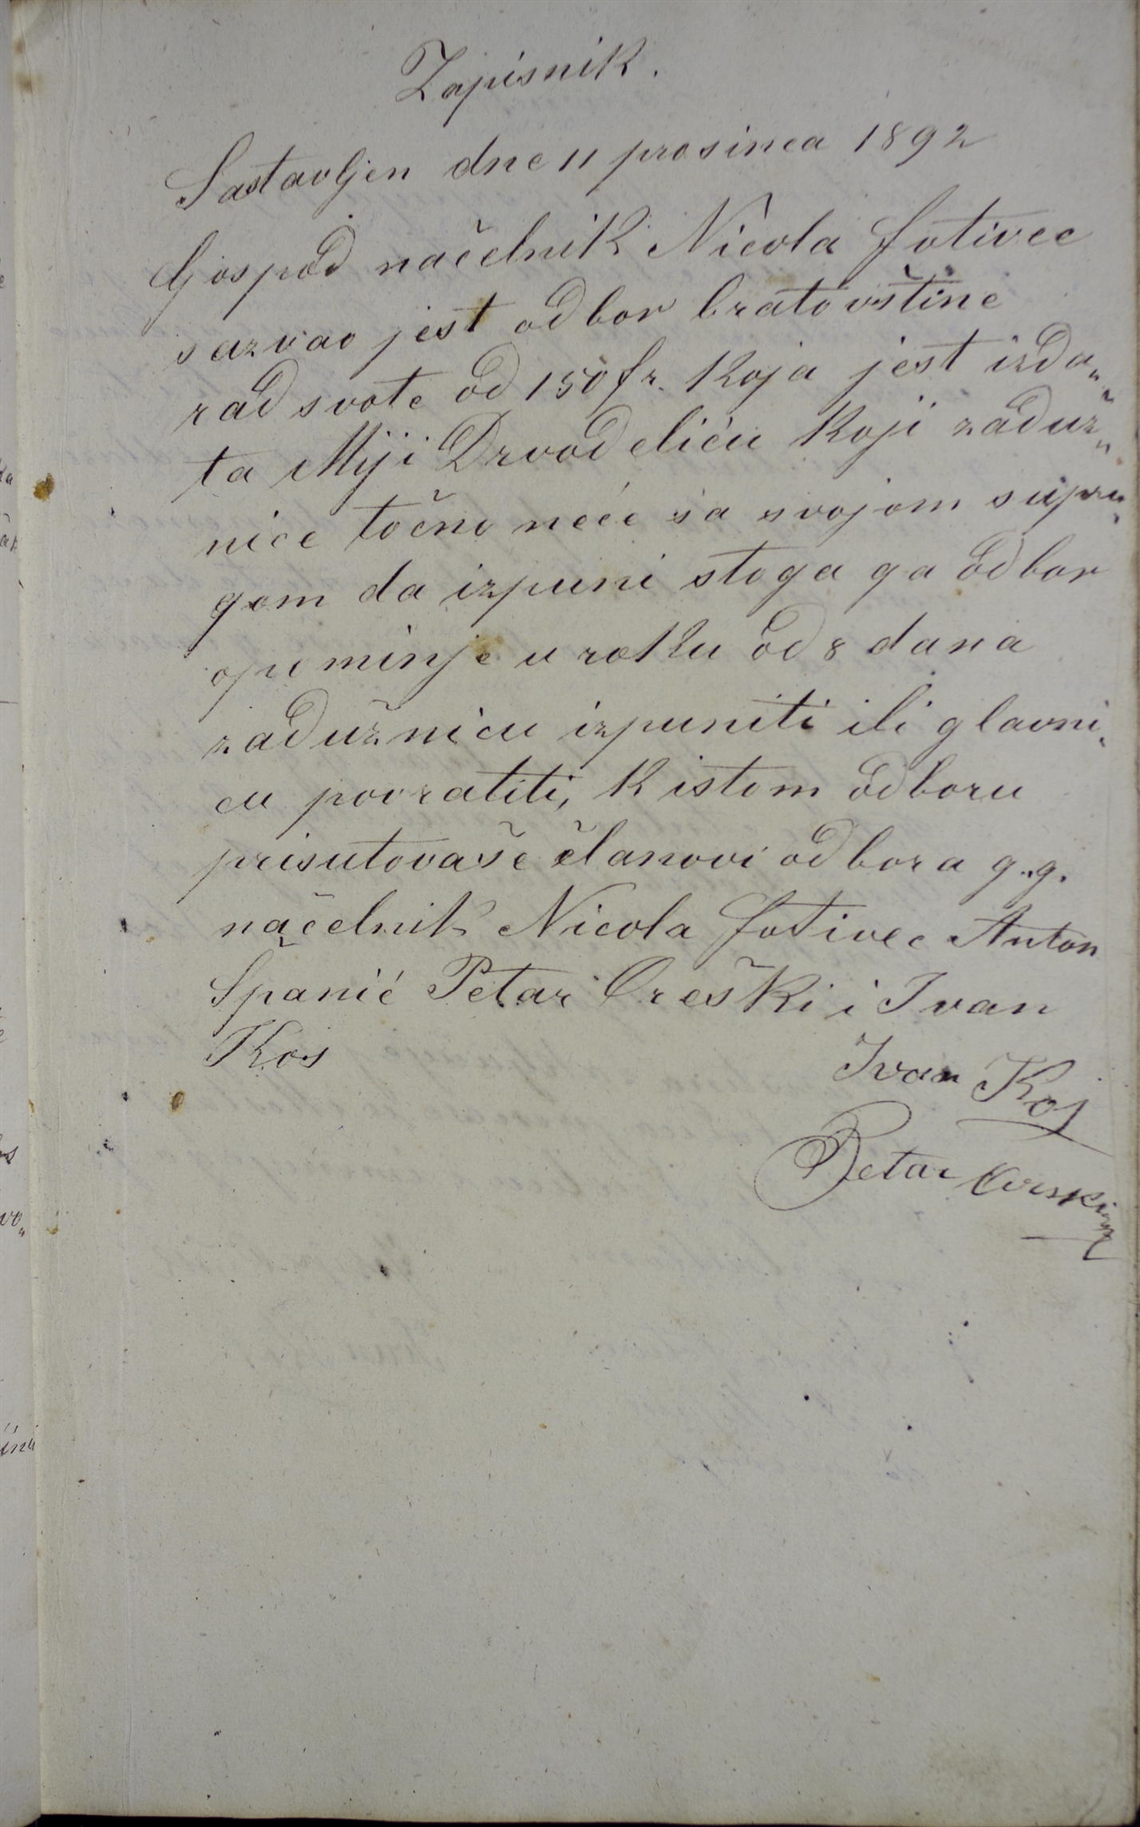 Zapisnik.
Sastavljen dne 11 prosinca 1892
Gospod načelnik Nicola Fotivec
sazvao jest odbor bratovštine
rad svote od 150 fr. koja jest izda„
ta Miji Drvodeliću koji zaduž„
nice točno neće sa svojom supru„
gom da izpuni stoga ga odbor
opuminje u roku od 8 dana
zadužnicu izpuniti ili glavni„
cu povratiti, k istom odboru
prisutovaše članovi odbora g.g.
načelnik Nicola Fotivec Anton
Španić Petar Oreški i Ivan
Kos
Ivan Kos
Petar